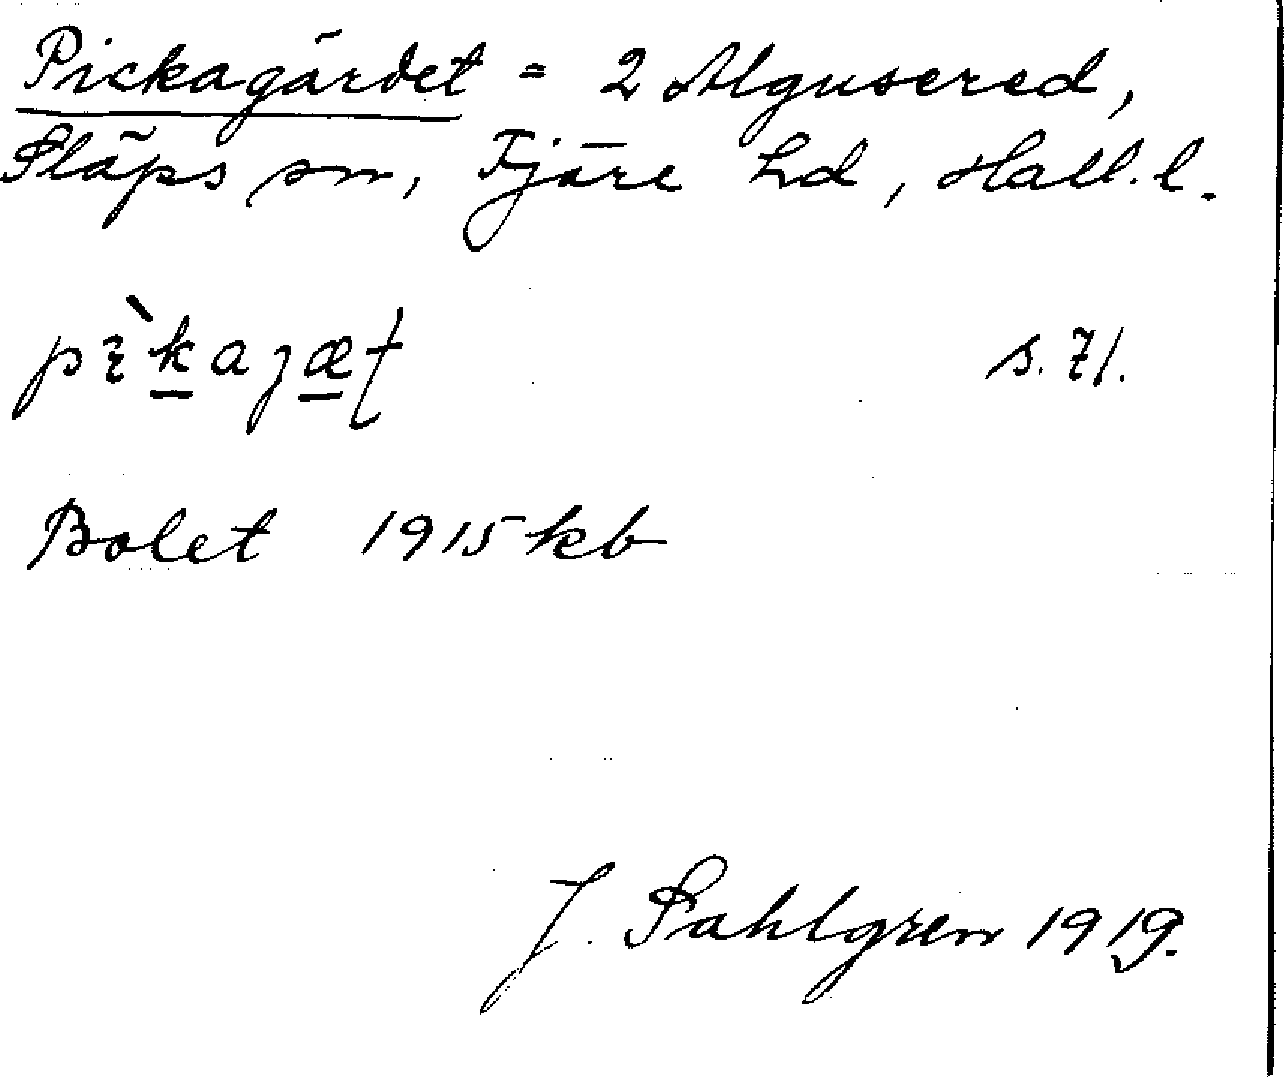 Pickagärdet = 2 Algusered,
Släps sn, Fjäre hd, Hall. l.
s. 71.
Bolet 1915 kb
J. Sahlgren 1919.